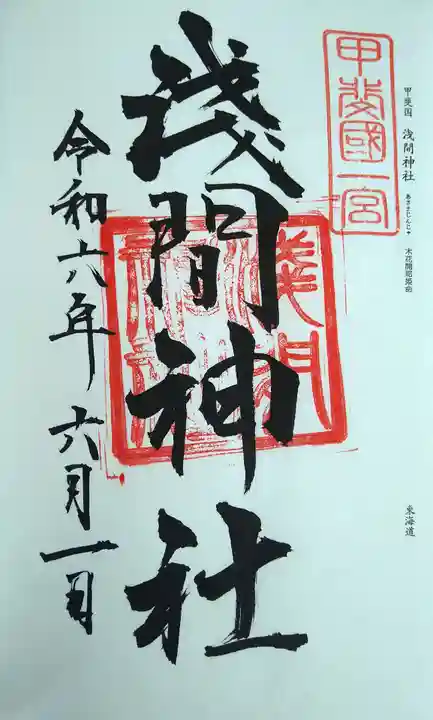 甲斐国 浅間神社 あさまじんじゃ 木花開耶姫命
東海道
甲斐國一宮
浅間神社
令和六年 六月一日